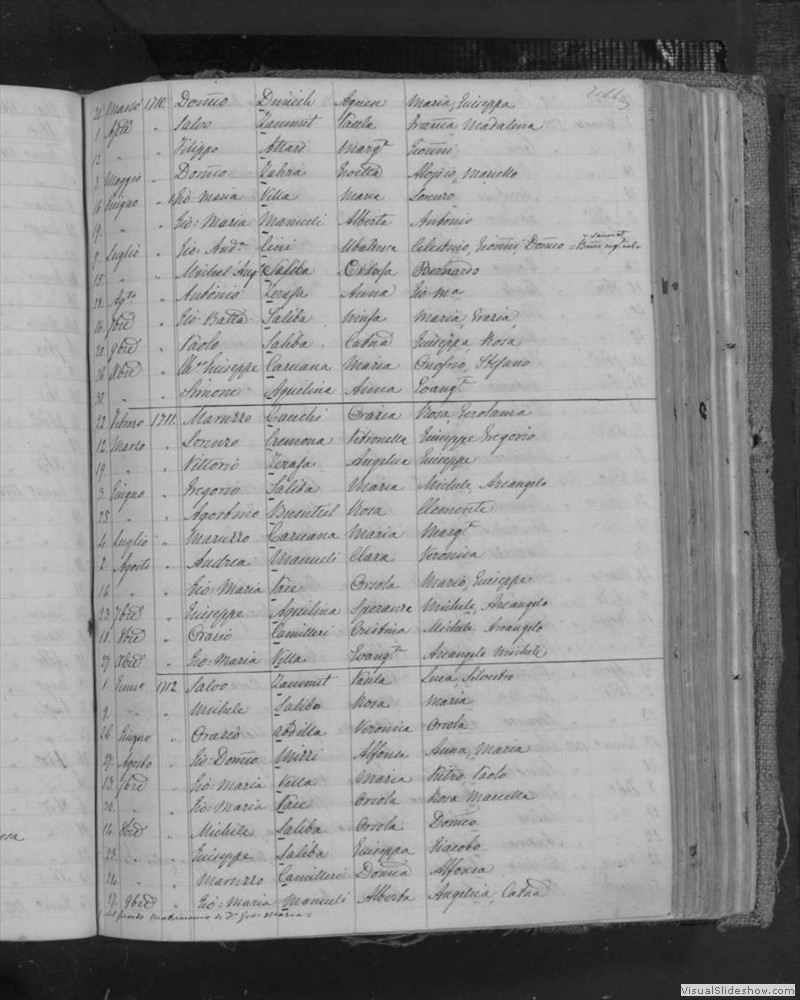 21 Marzo 1710. Dom̃co Dimech Agnese Maria, Giuseppa
1 Aple " Salvo Zammit Paula Madalena
12 " " Filippo Attard Margta Gioñni
2 Maggio " Dom̃co Zahra Aloisio, Mariello
16 Giugno " Gio: Maria Vella Maria Lorenzo
19 " " Gio: Maria Mamueli Alberta Antonio
9 Luglio " Gio: Andra Cini Celestino, Gioñni, Dom̃co
15 " " Michel'Angl Saliba Bernardo
28 Agto " Antonio Zerafa Anna Gio Ma
16 7bre " Gio: Batta Saliba Ninfa Maria, Grazia
20 9bre " Paolo Saliba Catna Giuseppa, Rosa
26 Xbre " Giuseppe Caruana Maria Onofrio, Stefano
30 " " Simone Aquilina Anna Evangta
22 Febro 1711. Maruzzo Cauchi Grazia Rosa, Gerolama
12 Marzo " Lorenzo Cremona Petronella Giuseppe Gregorio
19 " " Vittorio Zerafa Angelica Giuseppe
3 Giugno " Gregorio Saliba Maria Michele, Arcangelo
25 " " Agostino Rosa Clemente
4 Luglio " Maruzzo Caruana Maria Margta
2 Agosto " Andrea Mamueli Clara Veronica
14 " " Gio: Maria Pace Orsola Mario, Giuseppe
23 7bre " Giuseppe Aquilina Speranza Michele, Arcangelo
18 8bre " Orazio Camilleri Cristina Michele Arcangelo
27 Xbre " Gio: Maria Vella Evangta Arcangelo Michele
1 Genno 1712 Salvo Zammit Paula Luca, Silvestro
9 " " Michele Saliba Rosa Maria
26 Giugno " Orazio Abdilla Veronica Orsola
27 Agosto " Gio: Dom̃co Mizzi Alfonsa Anna, Maria
13 7bre " Gio: Maria Vella Maria Pietro, Paolo
20 " " Gio: Maria Pace Orsola Rosa Marcella
14 8bre " Michele Saliba Orsola Dom̃co
23 " " Giuseppe Saliba Giuseppa Giacobo
24 " " Maruzzo Camilleri Domca Alfonsa
17 9bre " Gio: Maria Mamueli Alberta Angelica, Catna
del secondo matrimonio di Gio: Maria
VisualSlideshow.com